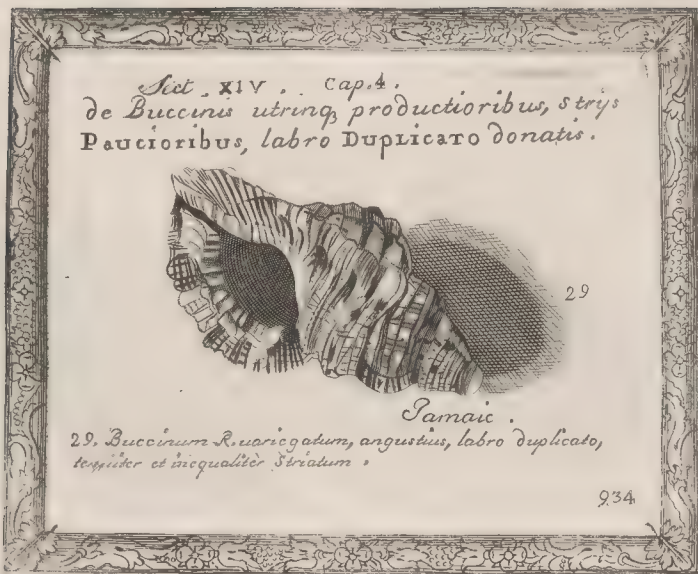 Sect. XIV. Cap. 4.
de Buccinis utrinq productioribus, strijs
Paucioribus, labro DuPLICATO donatis.
29
Jamaic.
29. Buccinum R. variegatum, angustius, labro duplicato,
et inequalitèr striatum.
934